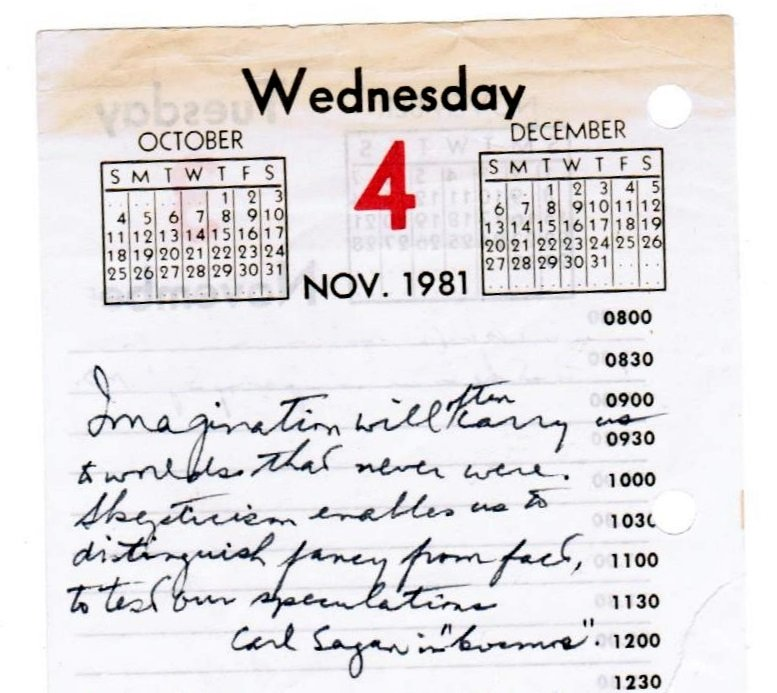 Wednesday
OCTOBER
S M T W T F S
1 2 3
4 5 6 7 8 9 10
11 12 13 14 15 16 17
18 19 20 21 22 23 24
25 26 27 28 29 30 31
4
NOV. 1981
DECEMBER
S M T W T F S
1 2 3 4 5
6 7 8 9 10 11 12
13 14 15 16 17 18 19
20 21 22 23 24 25 26
27 28 29 30 31
0800
0830
0900
0930
1000
1030
1100
1130
1200
1230
Imagination will often carry us
to worlds that never were.
Skepticism enables us to
distinguish fancy from fact,
to test our speculations
Carl Sagan in "Cosmos".